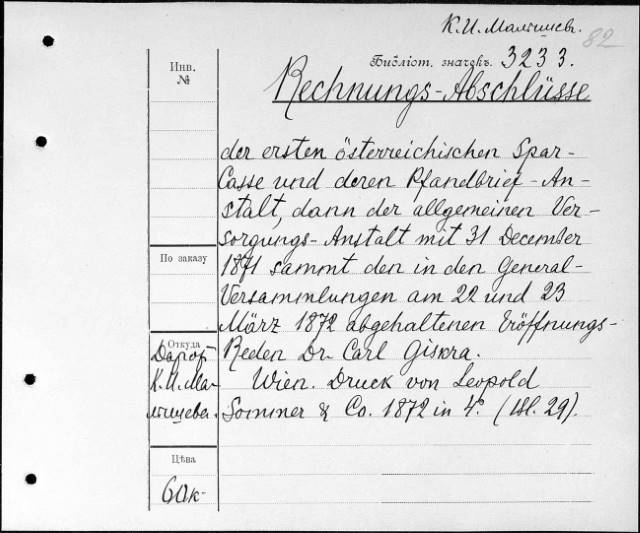 К.И. Малышевъ.
82
Инв.
№
Библіот. значекъ. 3233.
Rechnungs-Abschlüsse
der ersten österreichischen Spar-
Casse und deren Pfandbrief-An-
stalt, dann der allgemeinen Ver-
sorgungs-Anstalt mit 31 December
По заказу
1871 sammt den in den General-
Versammlungen am 22 und 23
März 1872 abgehaltenen Eröffnungs-
Откуда
Reden Dr. Carl Giskra.
Wien. Druck von Leopold
Sommer & Co. 1872 in 4º. (29).
К.И. Ма-
лышева.
Цѣна
60к-